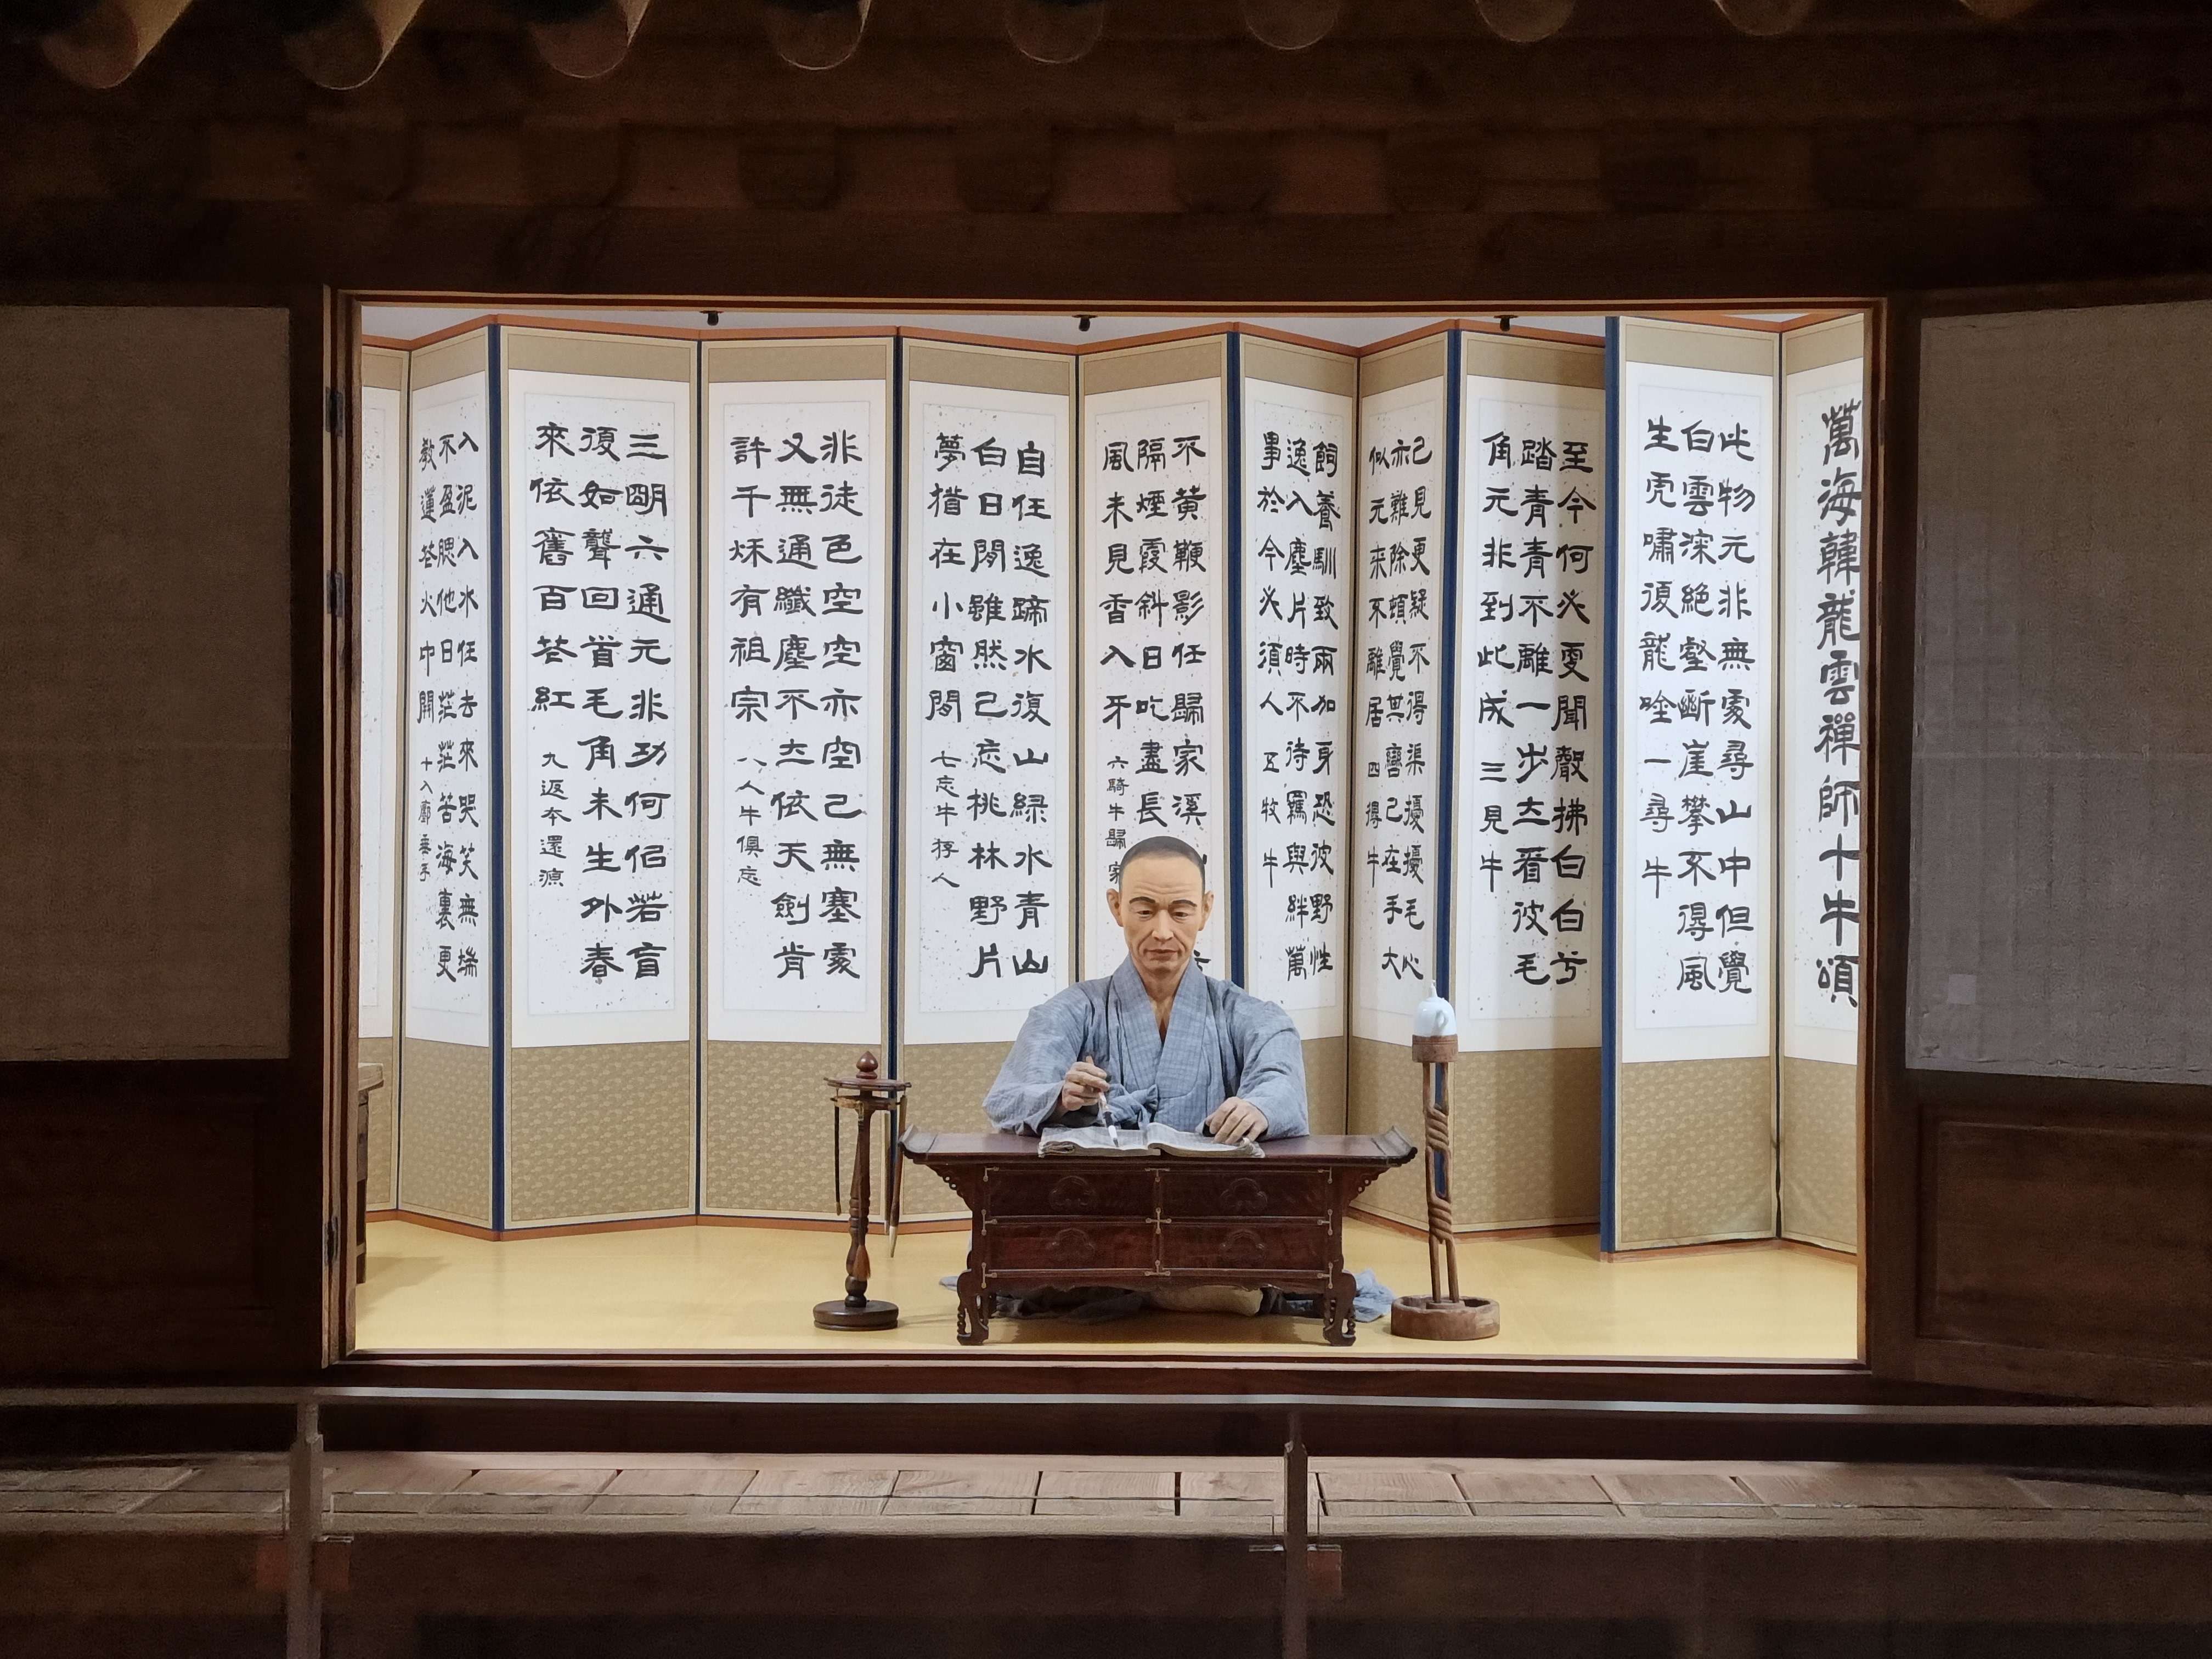 萬海韓龍雲禪師十牛頌
此物元非無處尋山中但覺
白雲深絕壑斷崖攀不得風
生虎嘯復龍唫一尋牛
至今何必更聞聲拂白白兮
踏青青不離一步立看彼毛
角元非到此成三見牛
己見更疑不得渠擾擾毛心
亦難除頓覺其轡己在手大
似元來不離居四得牛
飼養馴致兩加身恐彼野性
逸入塵片時不待羈與絆萬
事於今必須人五牧牛
不黃鞭影任歸家溪
隔煙霞斜日吃盡長
風未見香入牙六騎牛歸家
自任逸蹄水復山綠水青山
白日閒雖然已忘桃林野片
夢猶在小窗間七忘牛存人
非徒色空空亦空已無塞處
又無通纖塵不立依天劍肯
許千秋有祖宗八人牛俱忘
三明六通元非功何侶若盲
復如聾回首毛角未生外春
來依舊百花紅九返本還源
入泥入水任去來哭笑無端
不盈腮他日茫茫苦海裏更
教蓮花火中開十入鄽垂手